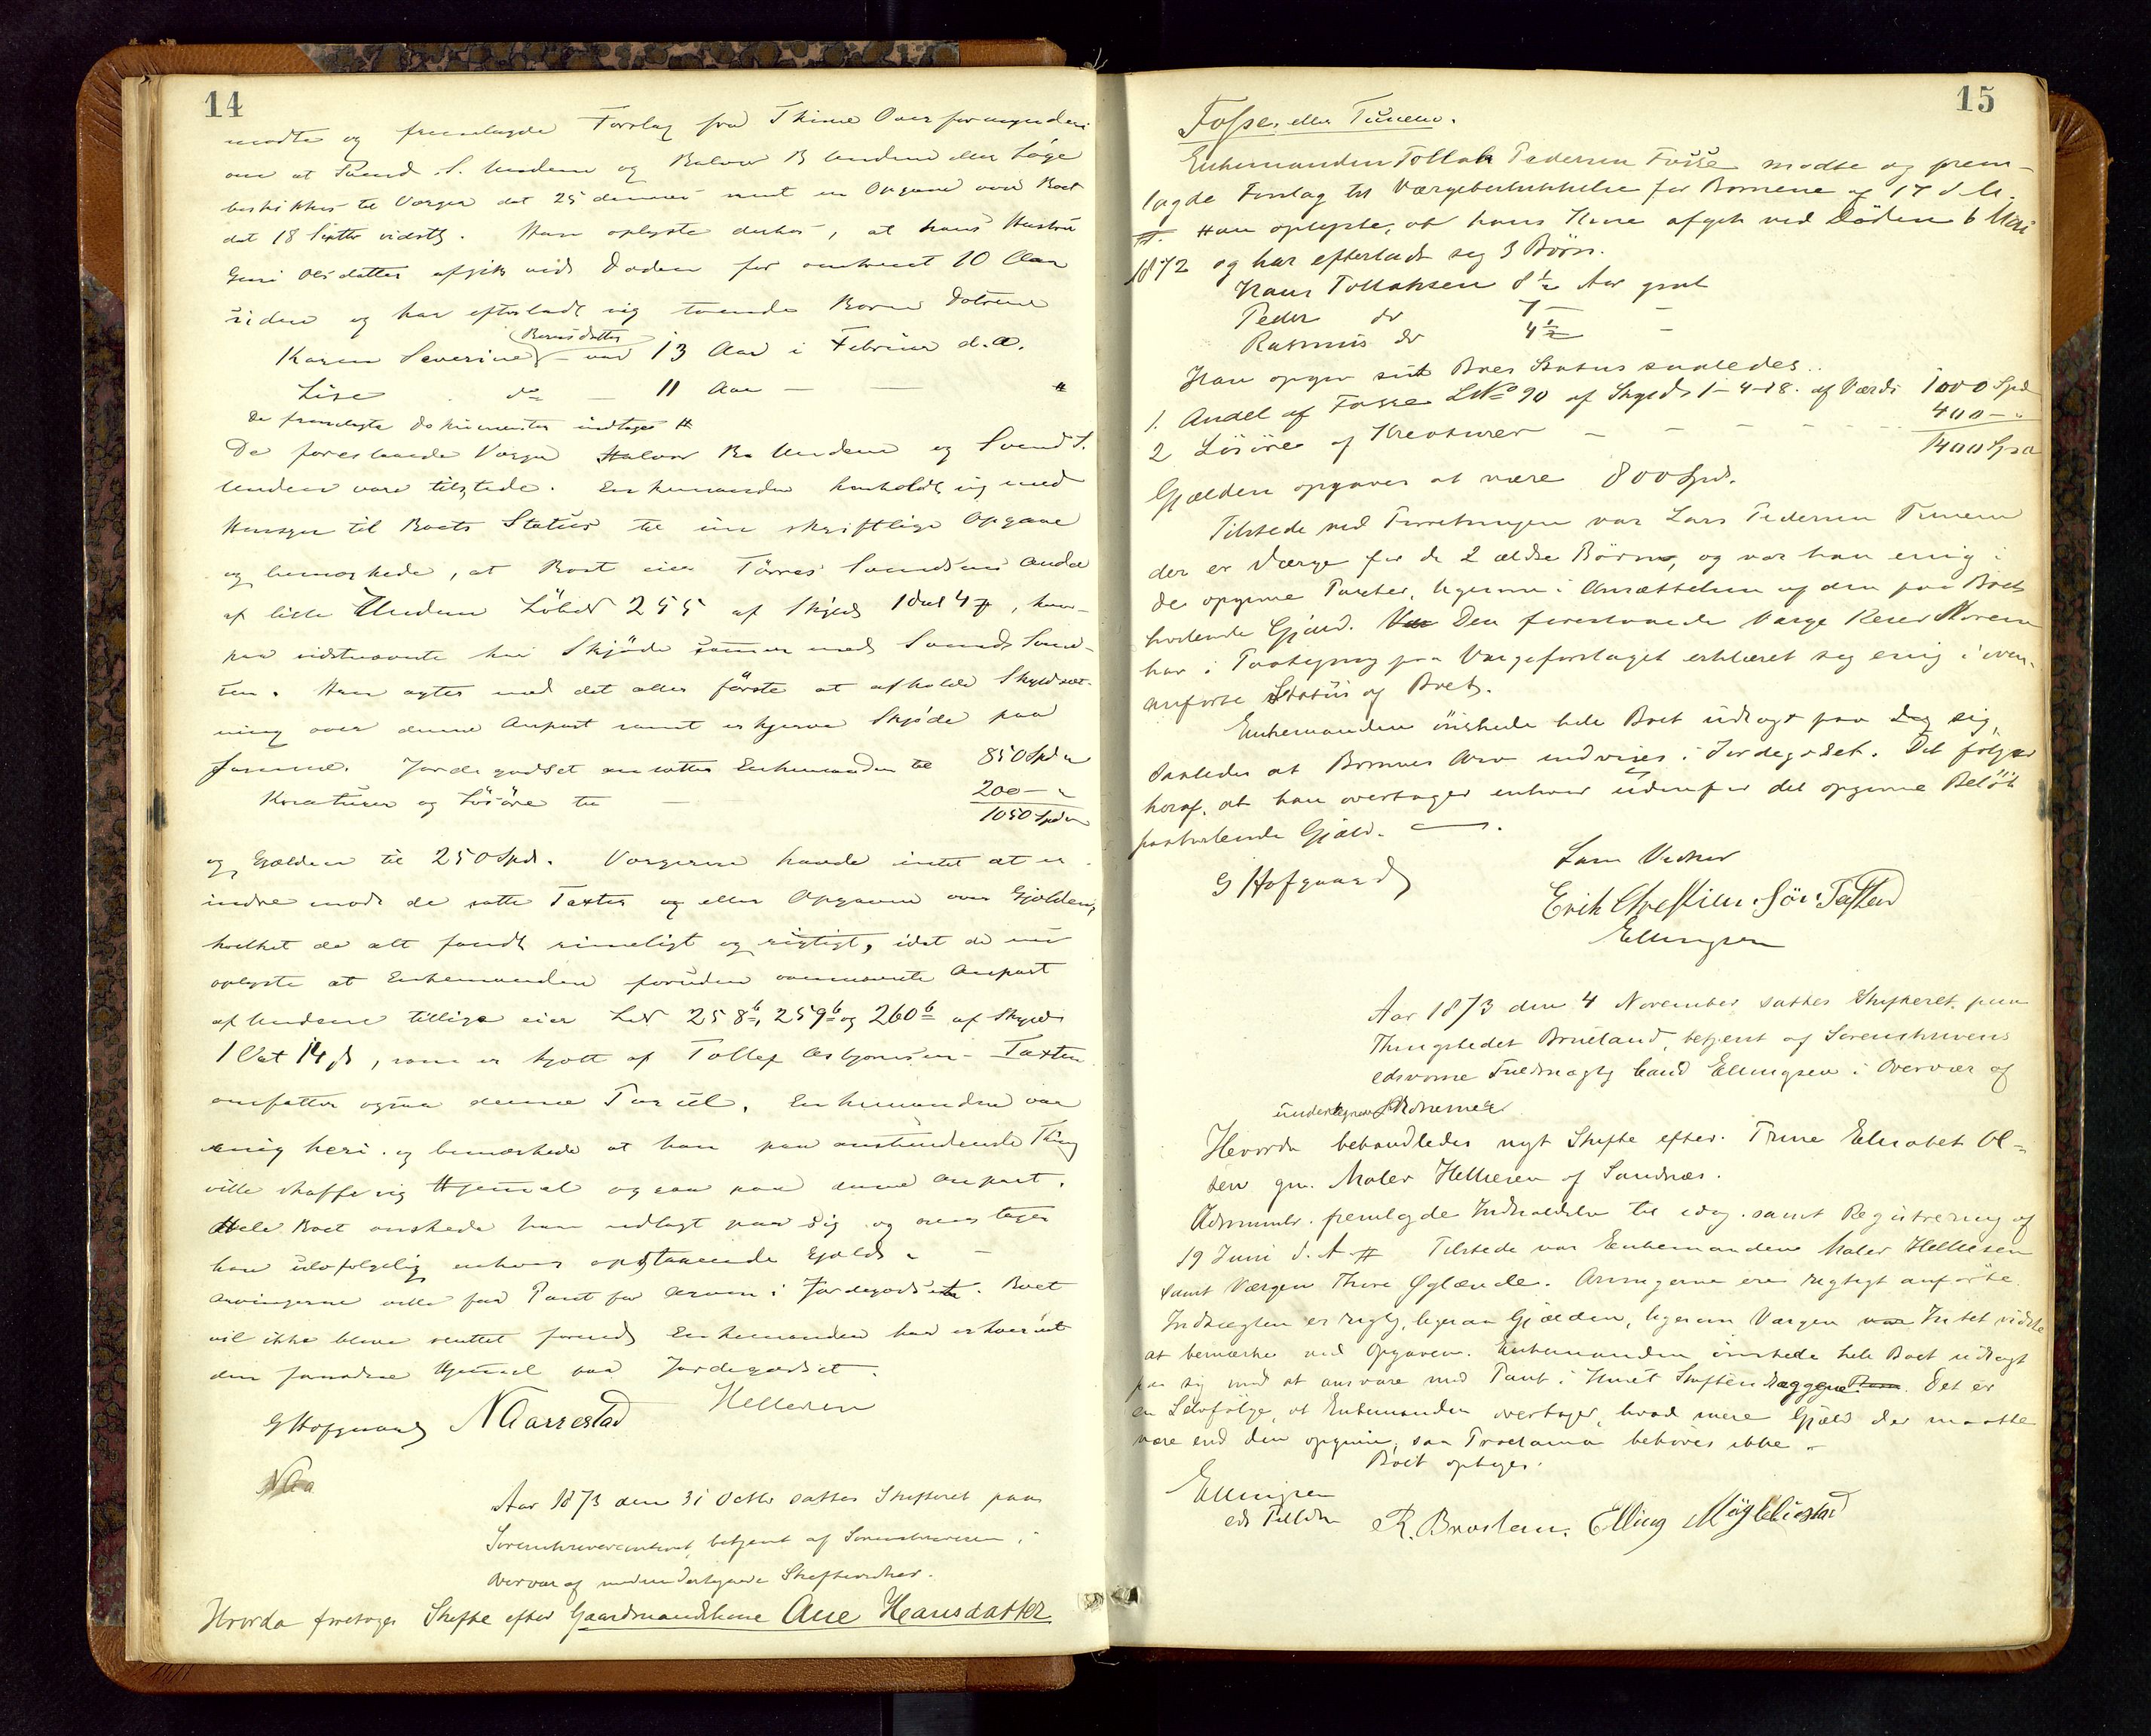 14
mødte og fremlagde Forslag fra Thime Overformynderi
om at Svend S. Undem og Halvor B Undem eller Løge
beskikkes til Værger dat 25 dennes samt en Opgave over Boet
dat 18 Septbr sidstl. Han oplyste derhos, at hans Hustru
Guri Olsdatter afgik ved Døden for omtrent 10 Aar
siden og har efterladt sig tvende Børn Døtrene
Berntsdatter
Karen Severine – var 13 Aar i Februar d.A.
Lise do – 11 Aar — — "
De fremlagte Dokumenter indtages #
De foreslaaede Værger Halvor B. Undem og Svend S.
Undem vare tilstede. Enkemanden henholdt sig med
Hensyn til Boets Status til sin skriftlige Opgave
og bemærkede, at Boet eier Tørres Svendsens Andel
af lille Undem Løbno 255 af Skyld 1 dal 4 ₰, hvor-
paa sidstnævnte har Skjøde sammen med Svend Svend-
sen. Han agter med det aller første at afholde Skyldsæt-
ning over denne Anpart samt erhverve Skjøde paa
samme. Jordegodset ansatte Enkemanden til 850 Spd "
Kreaturer og Løsøre til — 200 — "
1050 Spd "
og Gjælden til 250 Spd. Værgerne havde intet at er-
indre mod de satte Taxter og eller Opgaven over Gjælden,
hvilket de alt fandt rimeligt og rigtigt, idet de nu
oplyste at Enkemanden foruden ovennævnte Anpart
af Undem tillige eier Lno 258b, 259b og 260b af Skyld
1 Ort 14 ₰, som er kjøbt af Tollef Asbjørnsen – Taxten
omfatter ogsaa denne Parcel. Enkemanden var
enig heri. og bemærkede at han paa anstundende Thing
ville skaffe sig Hjemmel ogsaa paa denne Anpart.
Hele Boet ønskede han udlagt paa sig og overtager
han selvfølgelig enhver opstaaende Gjæld. –
Arvingerne ville faa Pant for Arven i Jordegodset. Boet
vil ikke blive sluttet forinden Enkemanden har erhvervet
den fornødne Hjemmel paa Jordegodset.
G Hofgaard NAarrestad Hellesen
NAa
Aar 1873 den 31 Octbr sattes Skifteret paa
Sorenskriverkontoret, betjent af Sorenskriveren i
Overvær af medundertegnede Skiftevidner.
Hvorda foretoges Skifte efter Gaardmandskone Ane Hansdatter
15
Fosse, eller Tunem.
Enkemanden Tollak Pedersen Fosse mødte og frem-
lagde Forslag til Værgebeskikkelse for Børnene af 17 d. M.
#. Han oplyste, at hans Kone afgik ved Døden 6 Mai
1872 og har efterladt sig 3 Børn.
Hans Tollaksen 8½ Aar gml
Peder do 7 — –
Rasmus do 4½ –
Han opgav sit Boes Status saaledes:
1. Andel af Fosse LNo 90 af Skyld 1–4–18. af Værdi 1000 Spd
2 Løsøre og Kreaturer – – – – – 400 – "
1400 Spd
Gjælden opgaves at være 800 Spd.
Tilstede ved Forretningen var Lars Pedersen Tunem
der er Værge for de 2 ældre Børn, og var han enig i
de opgivne Taxter, ligesom i Ansættelsen af den paa Boet
hvilende Gjæld. Den foreslaaede Værge Peder Norem
har i Paategning paa Værgeforslaget erklæret sig enig i oven-
anførte Status af Boet.
Enkemanden ønskede hele Boet udlagt paa sig,
saaledes at Børnenes Arv indvises i Jordegodset. Det følger
heraf, at han overtager enhver udenfor det opgivne Beløb
paahvilende Gjæld. —.
Som Vidner
G Hofgaard
Erik Christian Sør Tasten
Ellingsen
Aar 1873 den 4 November sattes Skifteret paa
Thingstedet Brueland, betjent af Sorenskriverens
edsvorne Fuldmægtig Cand Ellingsen i Overvær af
undertegnede Vidner
Hvorda behandledes nyt Skifte efter Trine Elisabet Ol-
sen gm. Maler Hellesen af Sandnæs.
Adminstr. fremlagde Indkaldelse til idag. samt Registrering af
19 Juni d. A # Tilstede var Enkemanden Maler Hellesen
samt Værgen Thore Øglænde. Arvingerne ere rigtigt anførte.
Indtægten er rigtig, ligesaa Gjælden, ligesom Værgen Intet vidste
at bemærke ved Opgaven. Enkemanden ønskede hele Boet udlagt
paa sig mod at ansvare med Pant i Huset Skiftens Det er
en Selvfølge, at Enkemanden overtager, hvad mere Gjæld der maatte
være end den opgivne, saa Proclama behøves ikke –
Boet optages.
Ellingsen
eds Fuldm R. Brostem. Elling Møglelistad